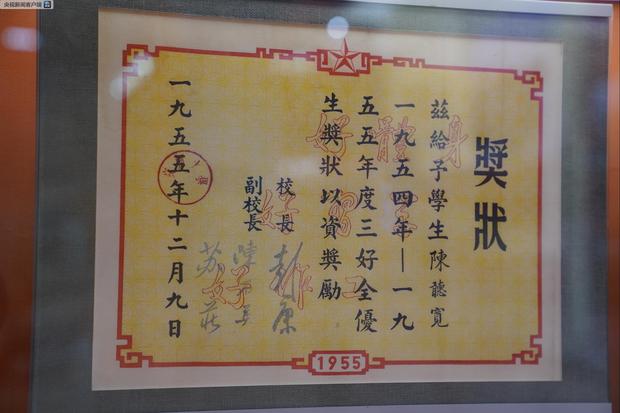 央视新闻客户端
獎狀
茲給予學生陳聽寬
一九五四年—一九
五五年度三好全優
生獎狀以資獎勵
校長 彭康
副校長
蘇莊
一九五五年十二月九日
身體好
1955